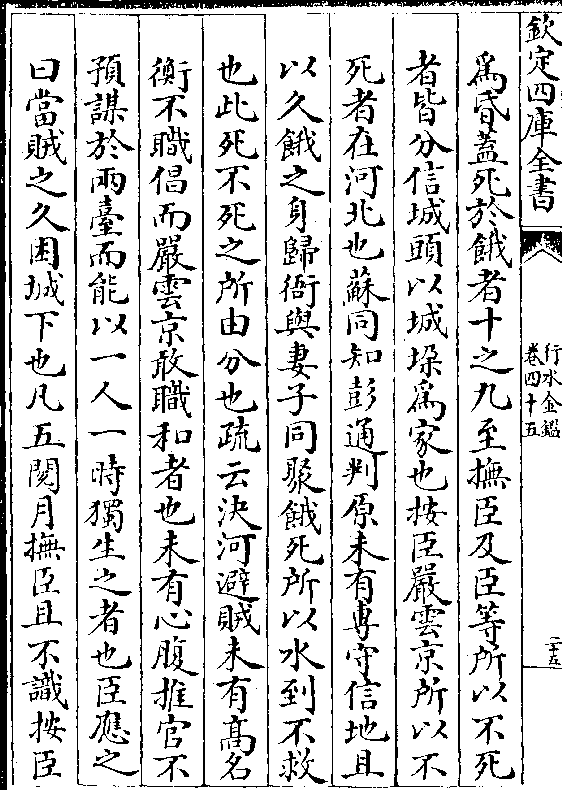 欽定四庫全書
行水金鑑
卷四十五
二十五
爲昏葢死於餓者十之九至撫臣及臣等所以不死
者皆分信城頭以城垛爲家也按臣嚴雲京所以不
死者在河北也蘇同知彭通判原未有專守信地且
以久餓之身歸衙與妻子同聚餓死所以水到不救
也此死不死之所由分也疏云決河避賊未有髙名
衡不職倡而嚴雲京敢職和者也未有心腹推官不
預謀於兩臺而能以一人一時獨生之者也臣應之
曰當賊之久困城下也凡五閱月撫臣且不識按臣